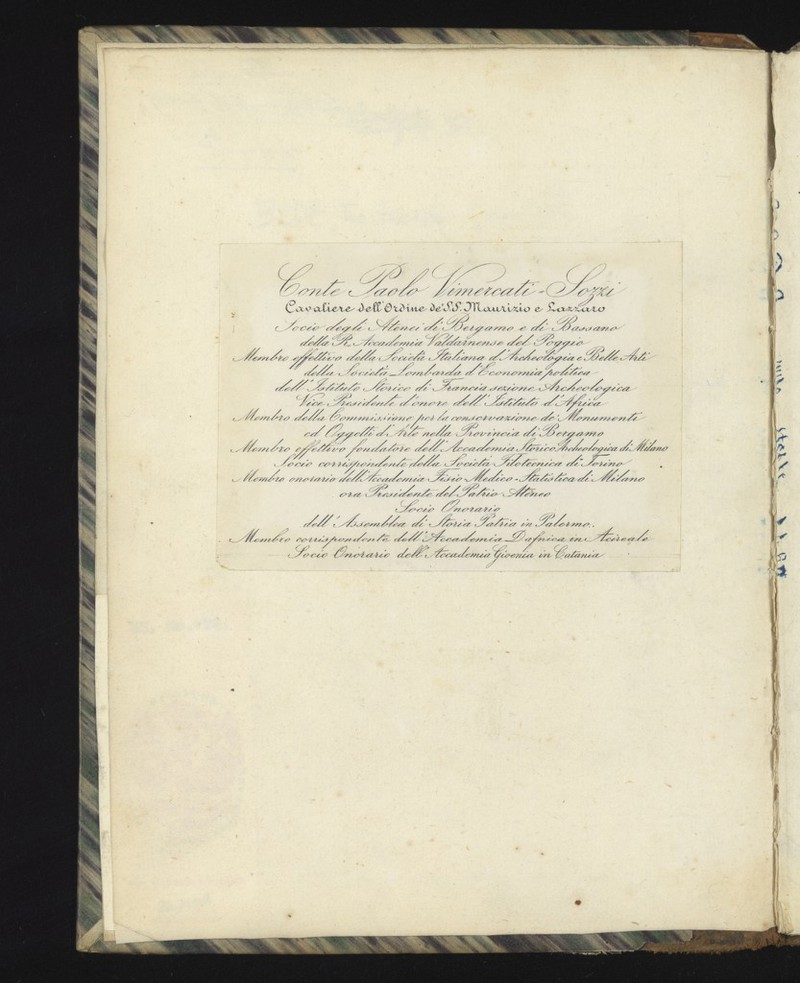 Conte Paolo Vimercati-Sozzi
Cavaliere dell'Ordine de' S.S. Maurizio e Lazzaro
Socio degli Atenei di Bergamo e di Bassano
della R. Accademia Valdarnense del Poggio
Membro effettivo della Società Italiana d'Archeologia e Belle Arti
della Società Lombarda d'Economia politica
dell'Istituto Storico di Francia sezione Archeologica
Vice Presidente d'onore dell'Istituto d'Africa
Membro della Commissione per la conservazione di Monumenti
ed Oggetti d'Arte nella Provincia di Bergamo
Membro effettivo fondatore dell'Accademia Storico Archeologica di Milano
Socio corrispondente della Società Filotecnica di Torino
Membro onorario dell'Accademia Fisio-Medico-Statistica di Milano
ora Presidente del Patrio Ateneo
Socio Onorario
dell'Assemblea di Storia Patria in Palermo.
Membro corrispondente dell'Accademia Dafnica in Acireale
Socio Onorario dell'Accademia Gioenia in Catania